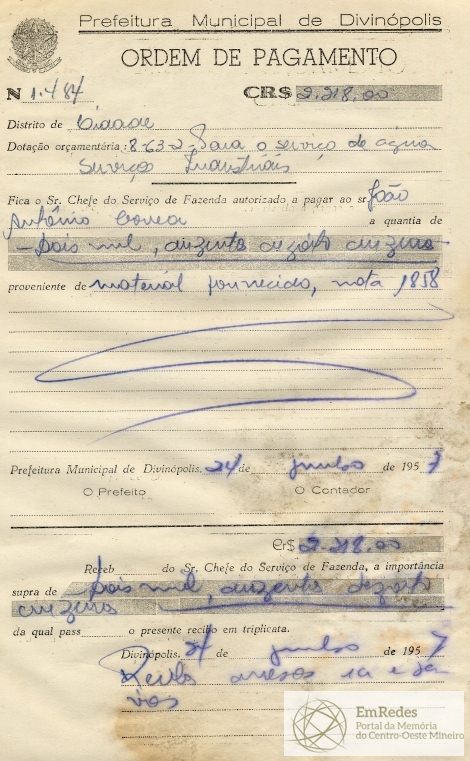 Prefeitura Municipal de Divinópolis
ORDEM DE PAGAMENTO
N 1.484 CR$ 2.218,00
Distrito de Cidade
Dotação orçamentária: 8-63-2-Para o serviço de agua
Serviços Industriais
Fica o Sr. Chefe do Serviço de Fazenda autorizado a pagar ao sr. João
Antônio Correa a quantia de
Dois mil, duzentos dezoito cruzeiros
proveniente de material fornecido, nota 1858
Prefeitura Municipal de Divinópolis, 24 de junho de 1957
O Prefeito O Contador
Cr$ 2.218,00
Receb do Sr. Chefe do Serviço de Fazenda, a importância
supra de Dois mil, duzentos dezoito
cruzeiros
da qual pass o presente recibo em triplicata.
Divinópolis, 24 de junho de 1957
EmRedes
Portal da Memória
do Centro-Oeste Mineiro